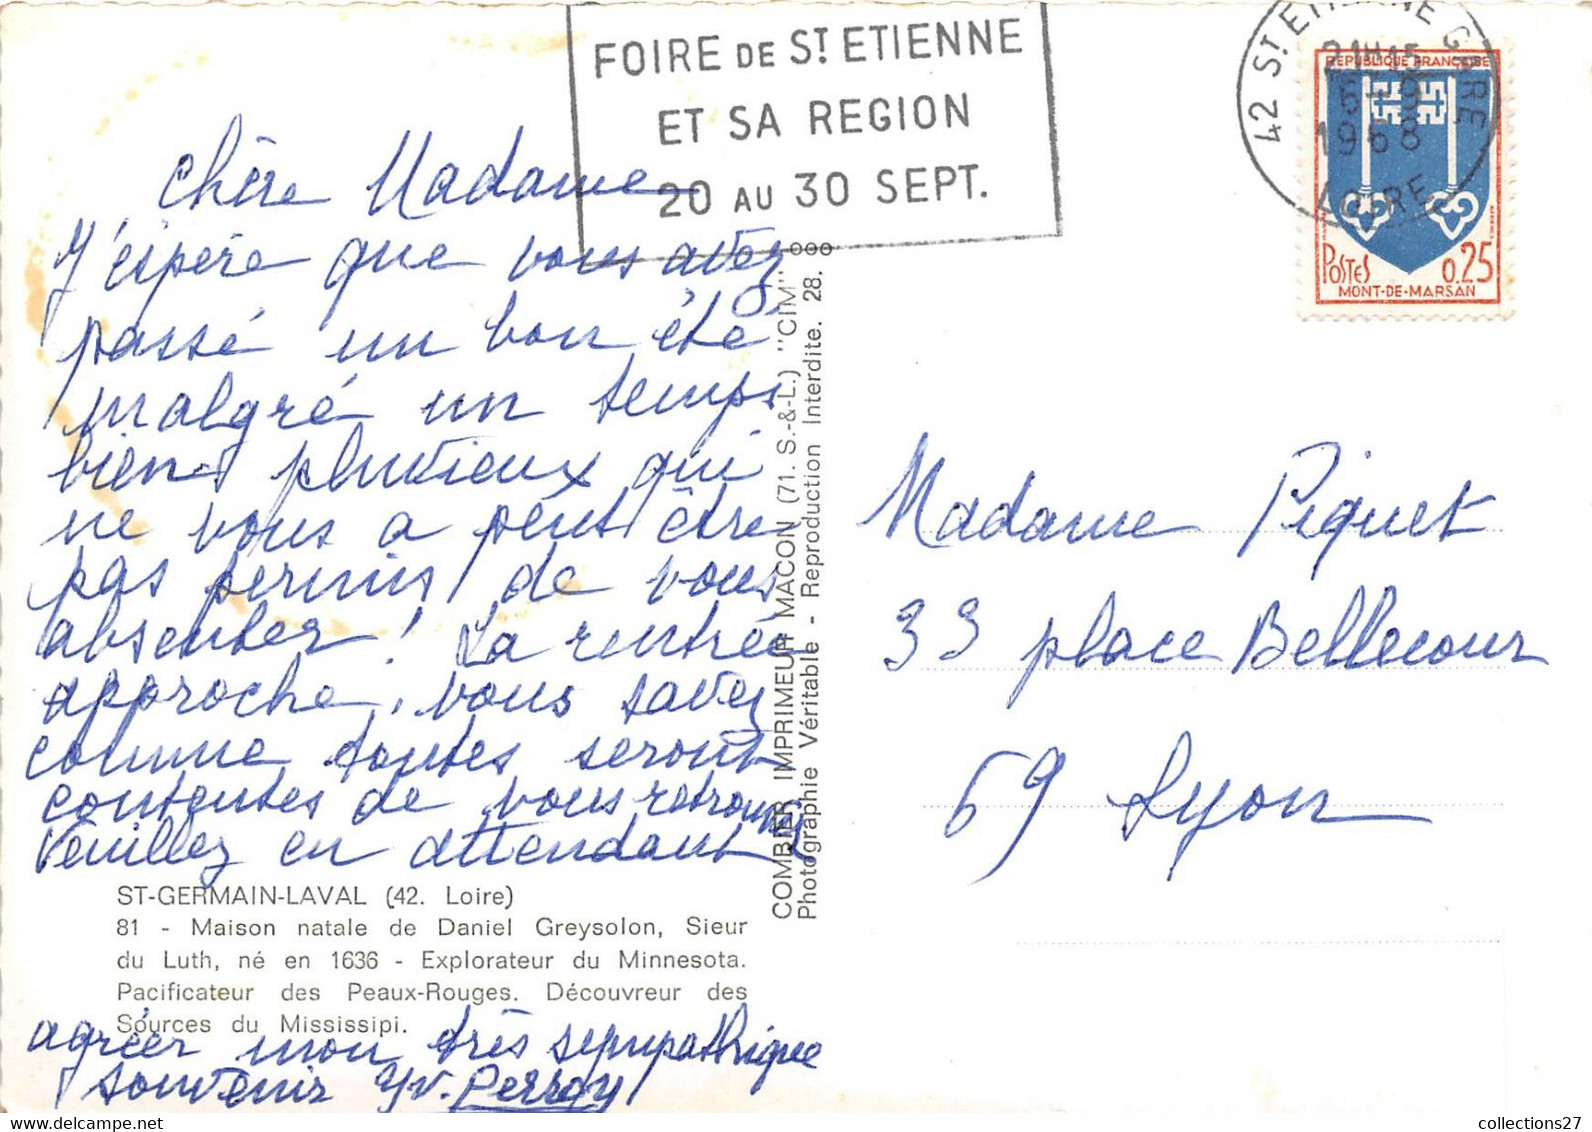 FOIRE DE ST ETIENNE
ET SA REGION
20 AU 30 SEPT.
42 ST ETIENNE GARE
21H15
5-9
1968
LOIRE
REPUBLIQUE FRANÇAISE
POSTES 0,25
MONT-DE-MARSAN
Chère Madame
J'espère que vous avez
passé un bon été
malgré un temps
bien pluvieux qui
ne vous a peut être
pas permis de vous
absenter ! La rentrée
approche, vous savez
comme toutes seront
contentes de vous retrouver
Veuillez en attendant
ST-GERMAIN-LAVAL (42. Loire)
81 - Maison natale de Daniel Greysolon, Sieur
du Luth, né en 1636 - Explorateur du Minnesota.
Pacificateur des Peaux-Rouges. Découvreur des
Sources du Mississipi.
agréer mon très sympathique
souvenir Yv. Perroy
COMBIER IMPRIMEUR MACON (71. S.-&-L.) "CIM"
Photographie Véritable - Reproduction Interdite. 28.
Madame Piquet
33 place Bellecour
69 Lyon
collections27